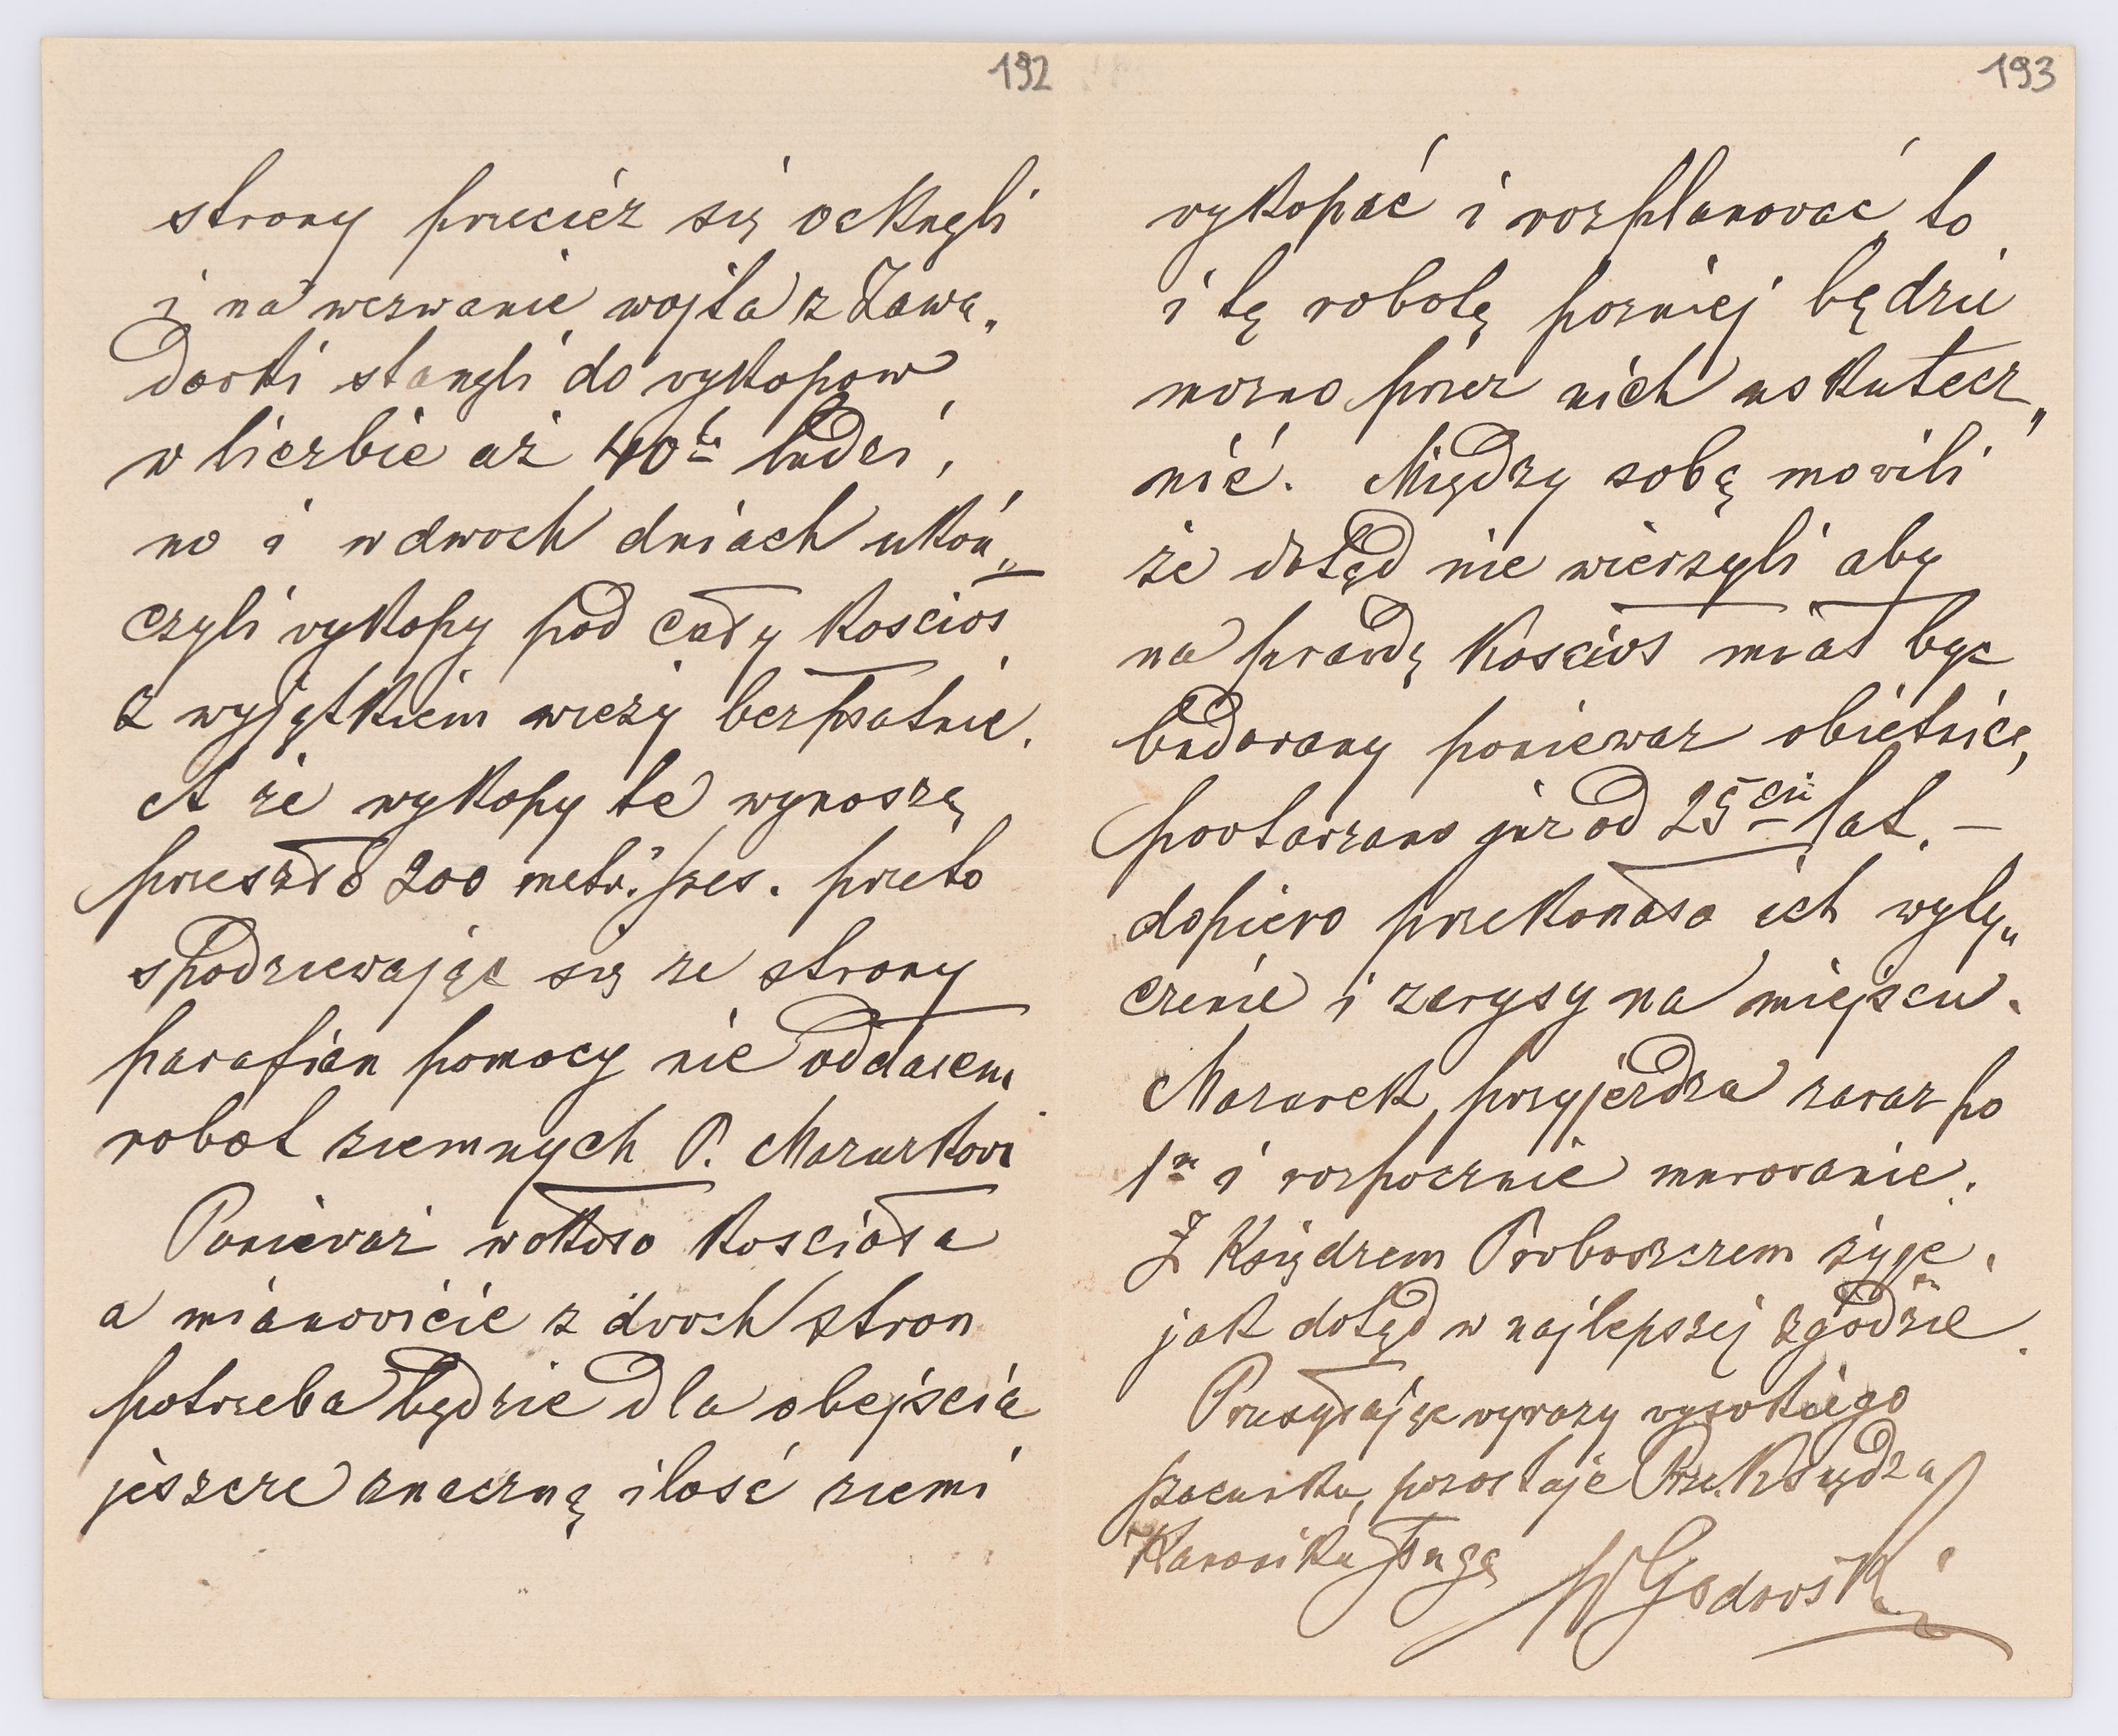 192
strony przecież się ocknęli
i na wezwanie wojta z Zawa„
dorki stanęli do wykopow
w liczbie aż 40tu ludzi,
no i w dwoch dniach ukoń„
czyli wykopy pod cały kościoł
z wyjątkiem wieży bezpłatnie.
A że wykopy te wynoszą
przeszło 200 metr. szes. przeto
spodziewając się ze strony
parafian pomocy nie oddałem
robot ziemnych P. Mazurkowi
Ponieważ wokoło kościoła
a mianowicie z dwoch stron
potrzeba będzie dla obejścia
jeszcze znaczną ilość ziemi
193
wykopać i rozplanować to
i tę robotę pozniej będzie
mozno przez nich uskutecz„
nić. Między sobą mowili
że dotąd nie wierzyli aby
na prawdę kościoł miał byc
budowany poniewaz obietnicę
powtarzano juz od 25ciu lat. —
dopiero przekonało ich wyty„
czenie i zarysy na miejscu.
Mazurek przyjezdza zaraz po
1m i rozpocznie murowanie.
Z Księdzem Proboszczem żyję
jak dotąd w najlepszej zgodzie.
Przesyłając wyrazy wysokiego
szacunku, pozostaję Prze. Księdza
Kanonika sługą